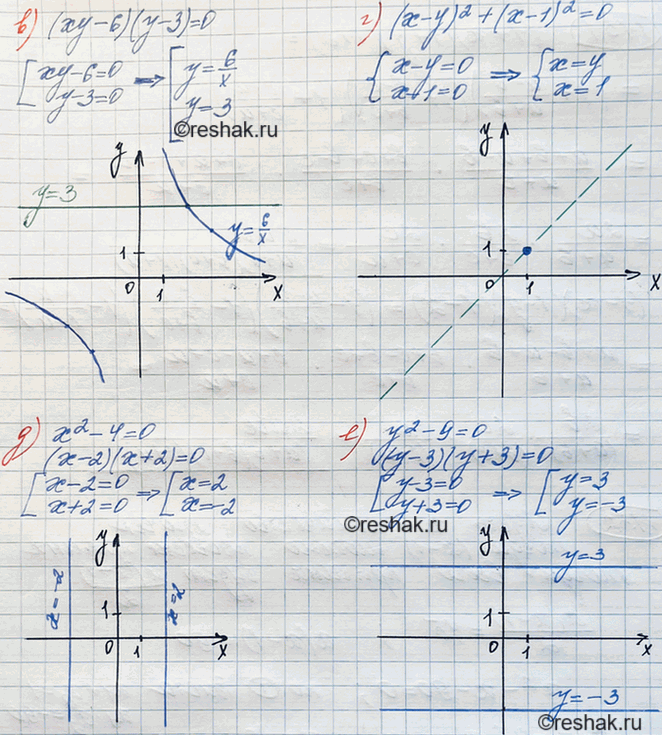 в) (xy-6)(y-3)=0
[xy-6=0 => [y=6/x
y-3=0 y=3
©reshak.ru
y
y=3
y=6/x
1
0 1 x
г) (x-y)²+(x-1)²=0
{x-y=0 => {x=y
x-1=0 x=1
y
1
0 1 x
д) x²-4=0
(x-2)(x+2)=0
[x-2=0 => [x=2
x+2=0 x=-2
y
x=-2
x=2
1
0 1 x
е) y²-9=0
(y-3)(y+3)=0
[y-3=0 => [y=3
y+3=0 y=-3
©reshak.ru
y
y=3
1
0 1 x
y=-3
©reshak.ru